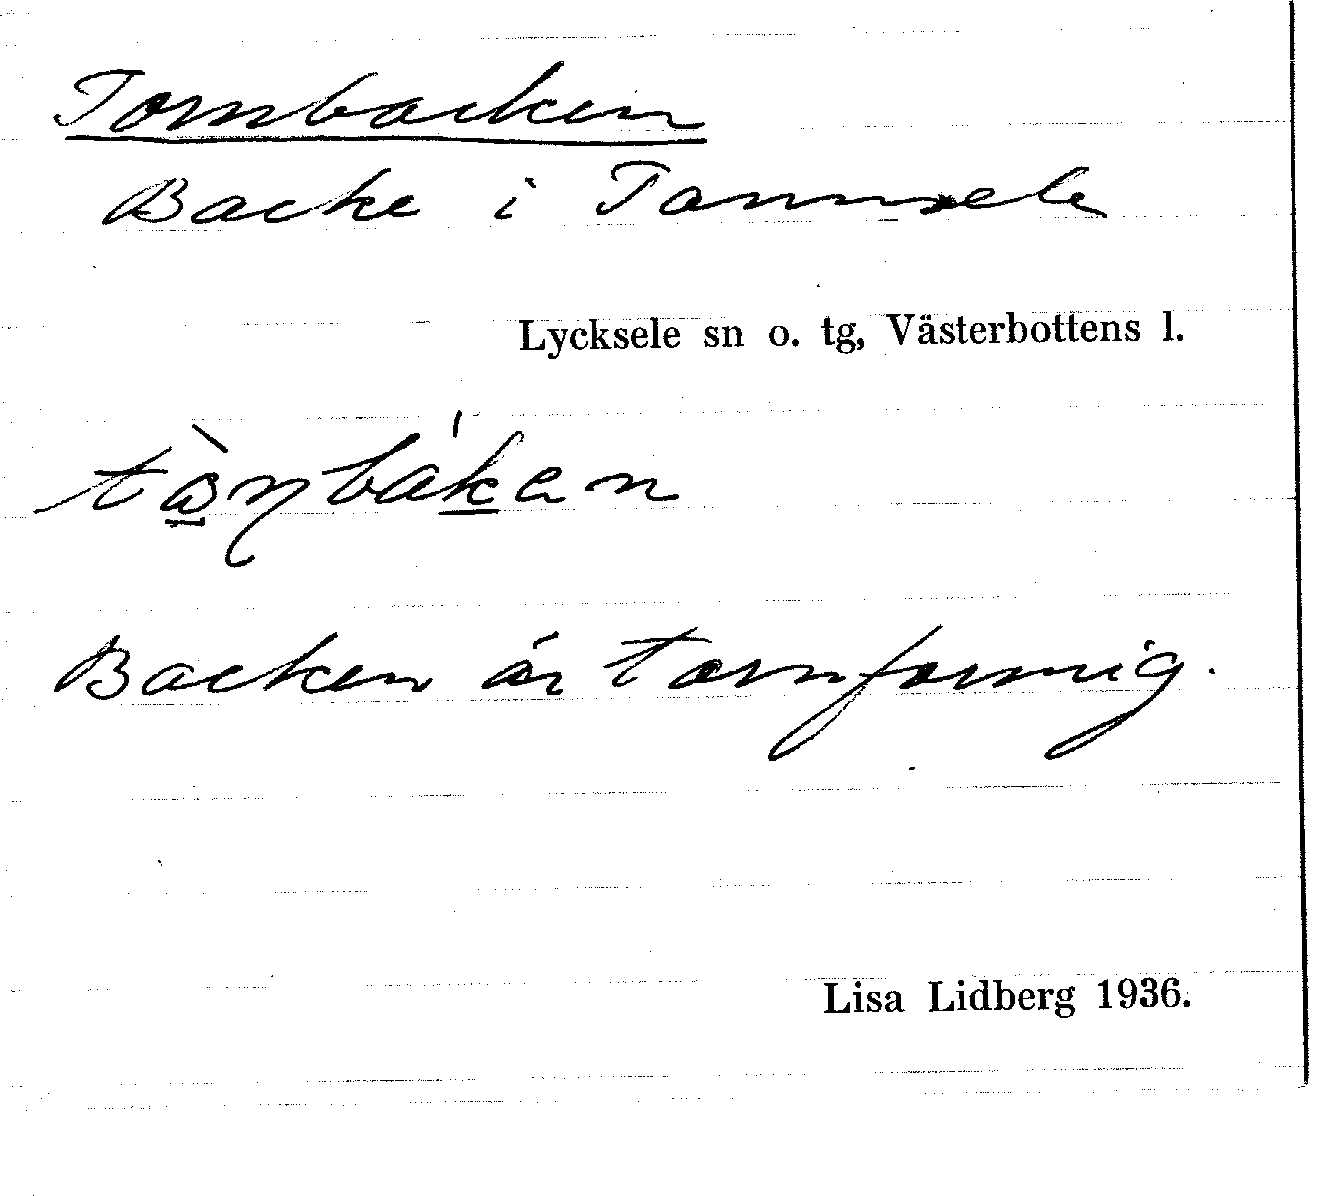 Tornbacken
Backe i Tannsele
Lycksele sn o. tg, Västerbottens l.
Backen är tornformig.
Lisa Lidberg 1936.